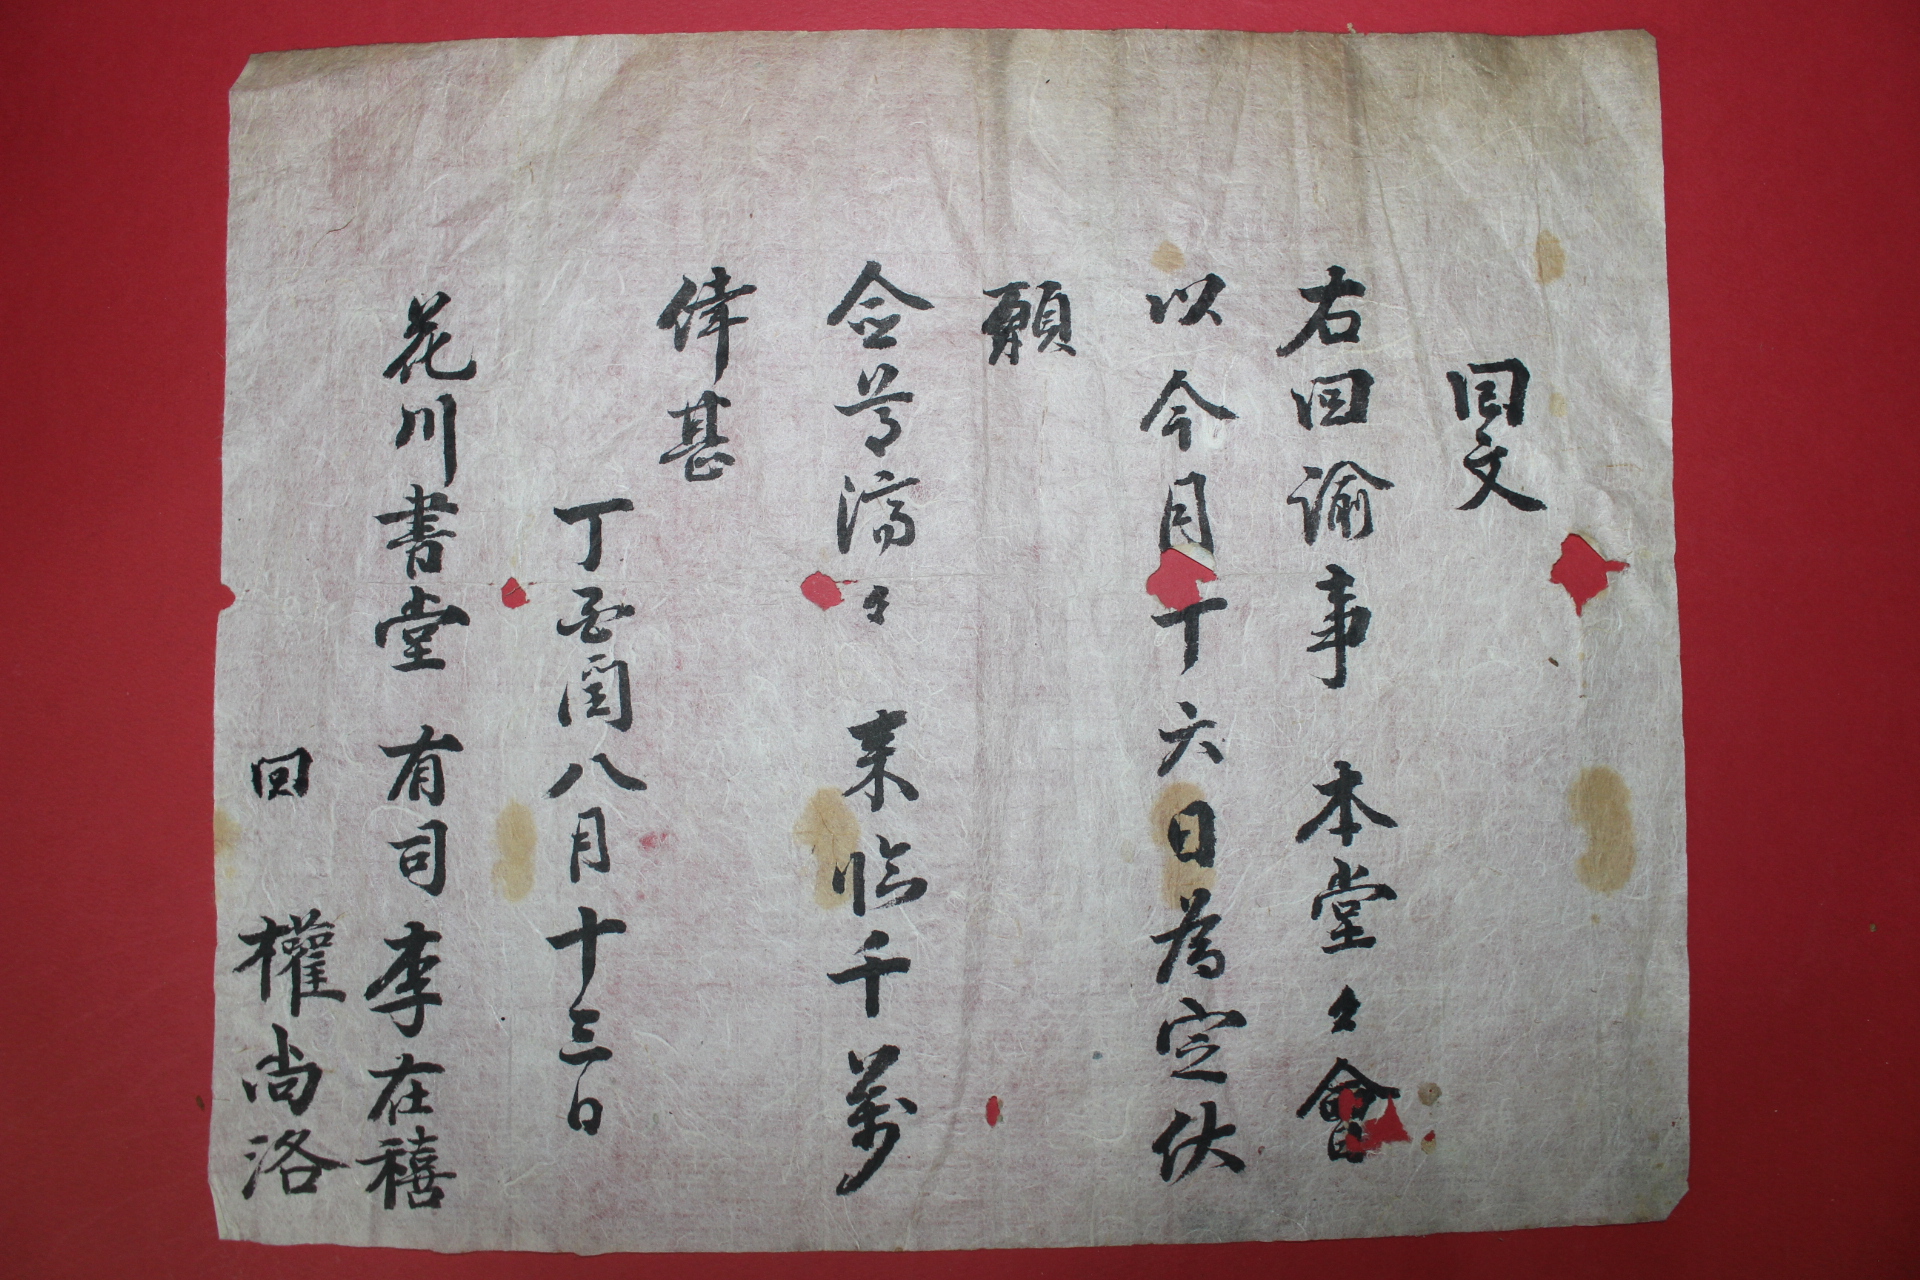 回文
右回諭事 本堂々會
以今月十六日為定伏
願
僉尊濟々 来臨千萬
倖甚
丁酉閏八月十三日
花川書堂 有司 李在禧
回 權尚洛